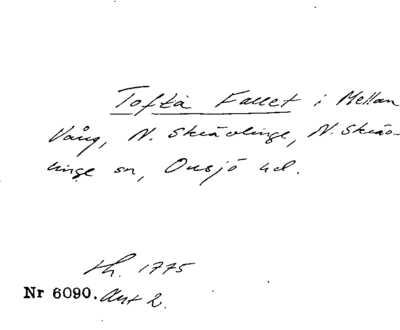 Toftå Fallet i Mellan
Vång, N. Skrävlinge, N. Skräv-
linge sn, Onsjö hd.
th. 1775
Nr 6090. Akt 2.